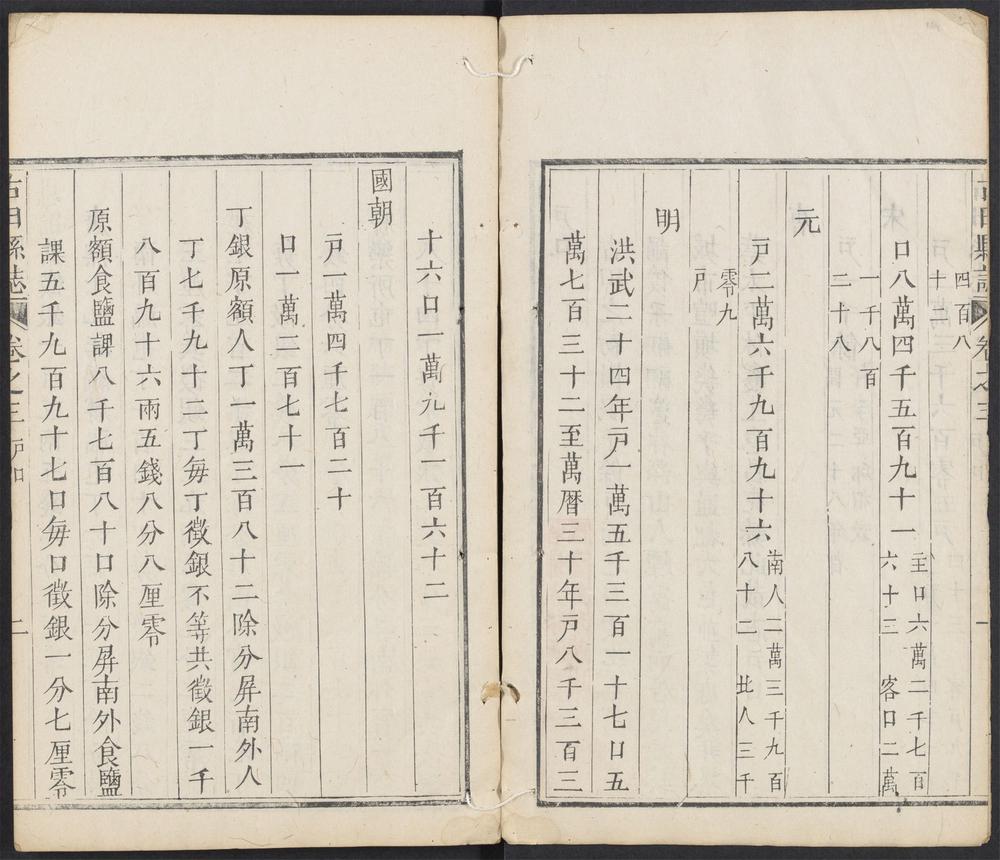 古田縣誌 卷之三 一
四百八
十二
口八萬四千五百九十一
主口六萬二千七百
六十三 客口二萬
一千八百
二十八
元
戸二萬六千九百九十六
南人二萬三千九百
八十二 北人三千
零九
戸
明
洪武二十四年戸一萬五千三百一十七口五
萬七百三十二至萬暦三十年戸八千三百三
十六口二萬九千一百六十二
國朝
戸一萬四千七百二十
口一萬二百七十一
丁銀原額人丁一萬三百八十二除分屏南外人
丁七千九十二丁每丁徵銀不等共徵銀一千
八百九十六兩五錢八分八厘零
原額食鹽課八千七百八十口除分屏南外食鹽
課五千九百九十七口每口徵銀一分七厘零
古田縣誌 卷之三 戸口 二